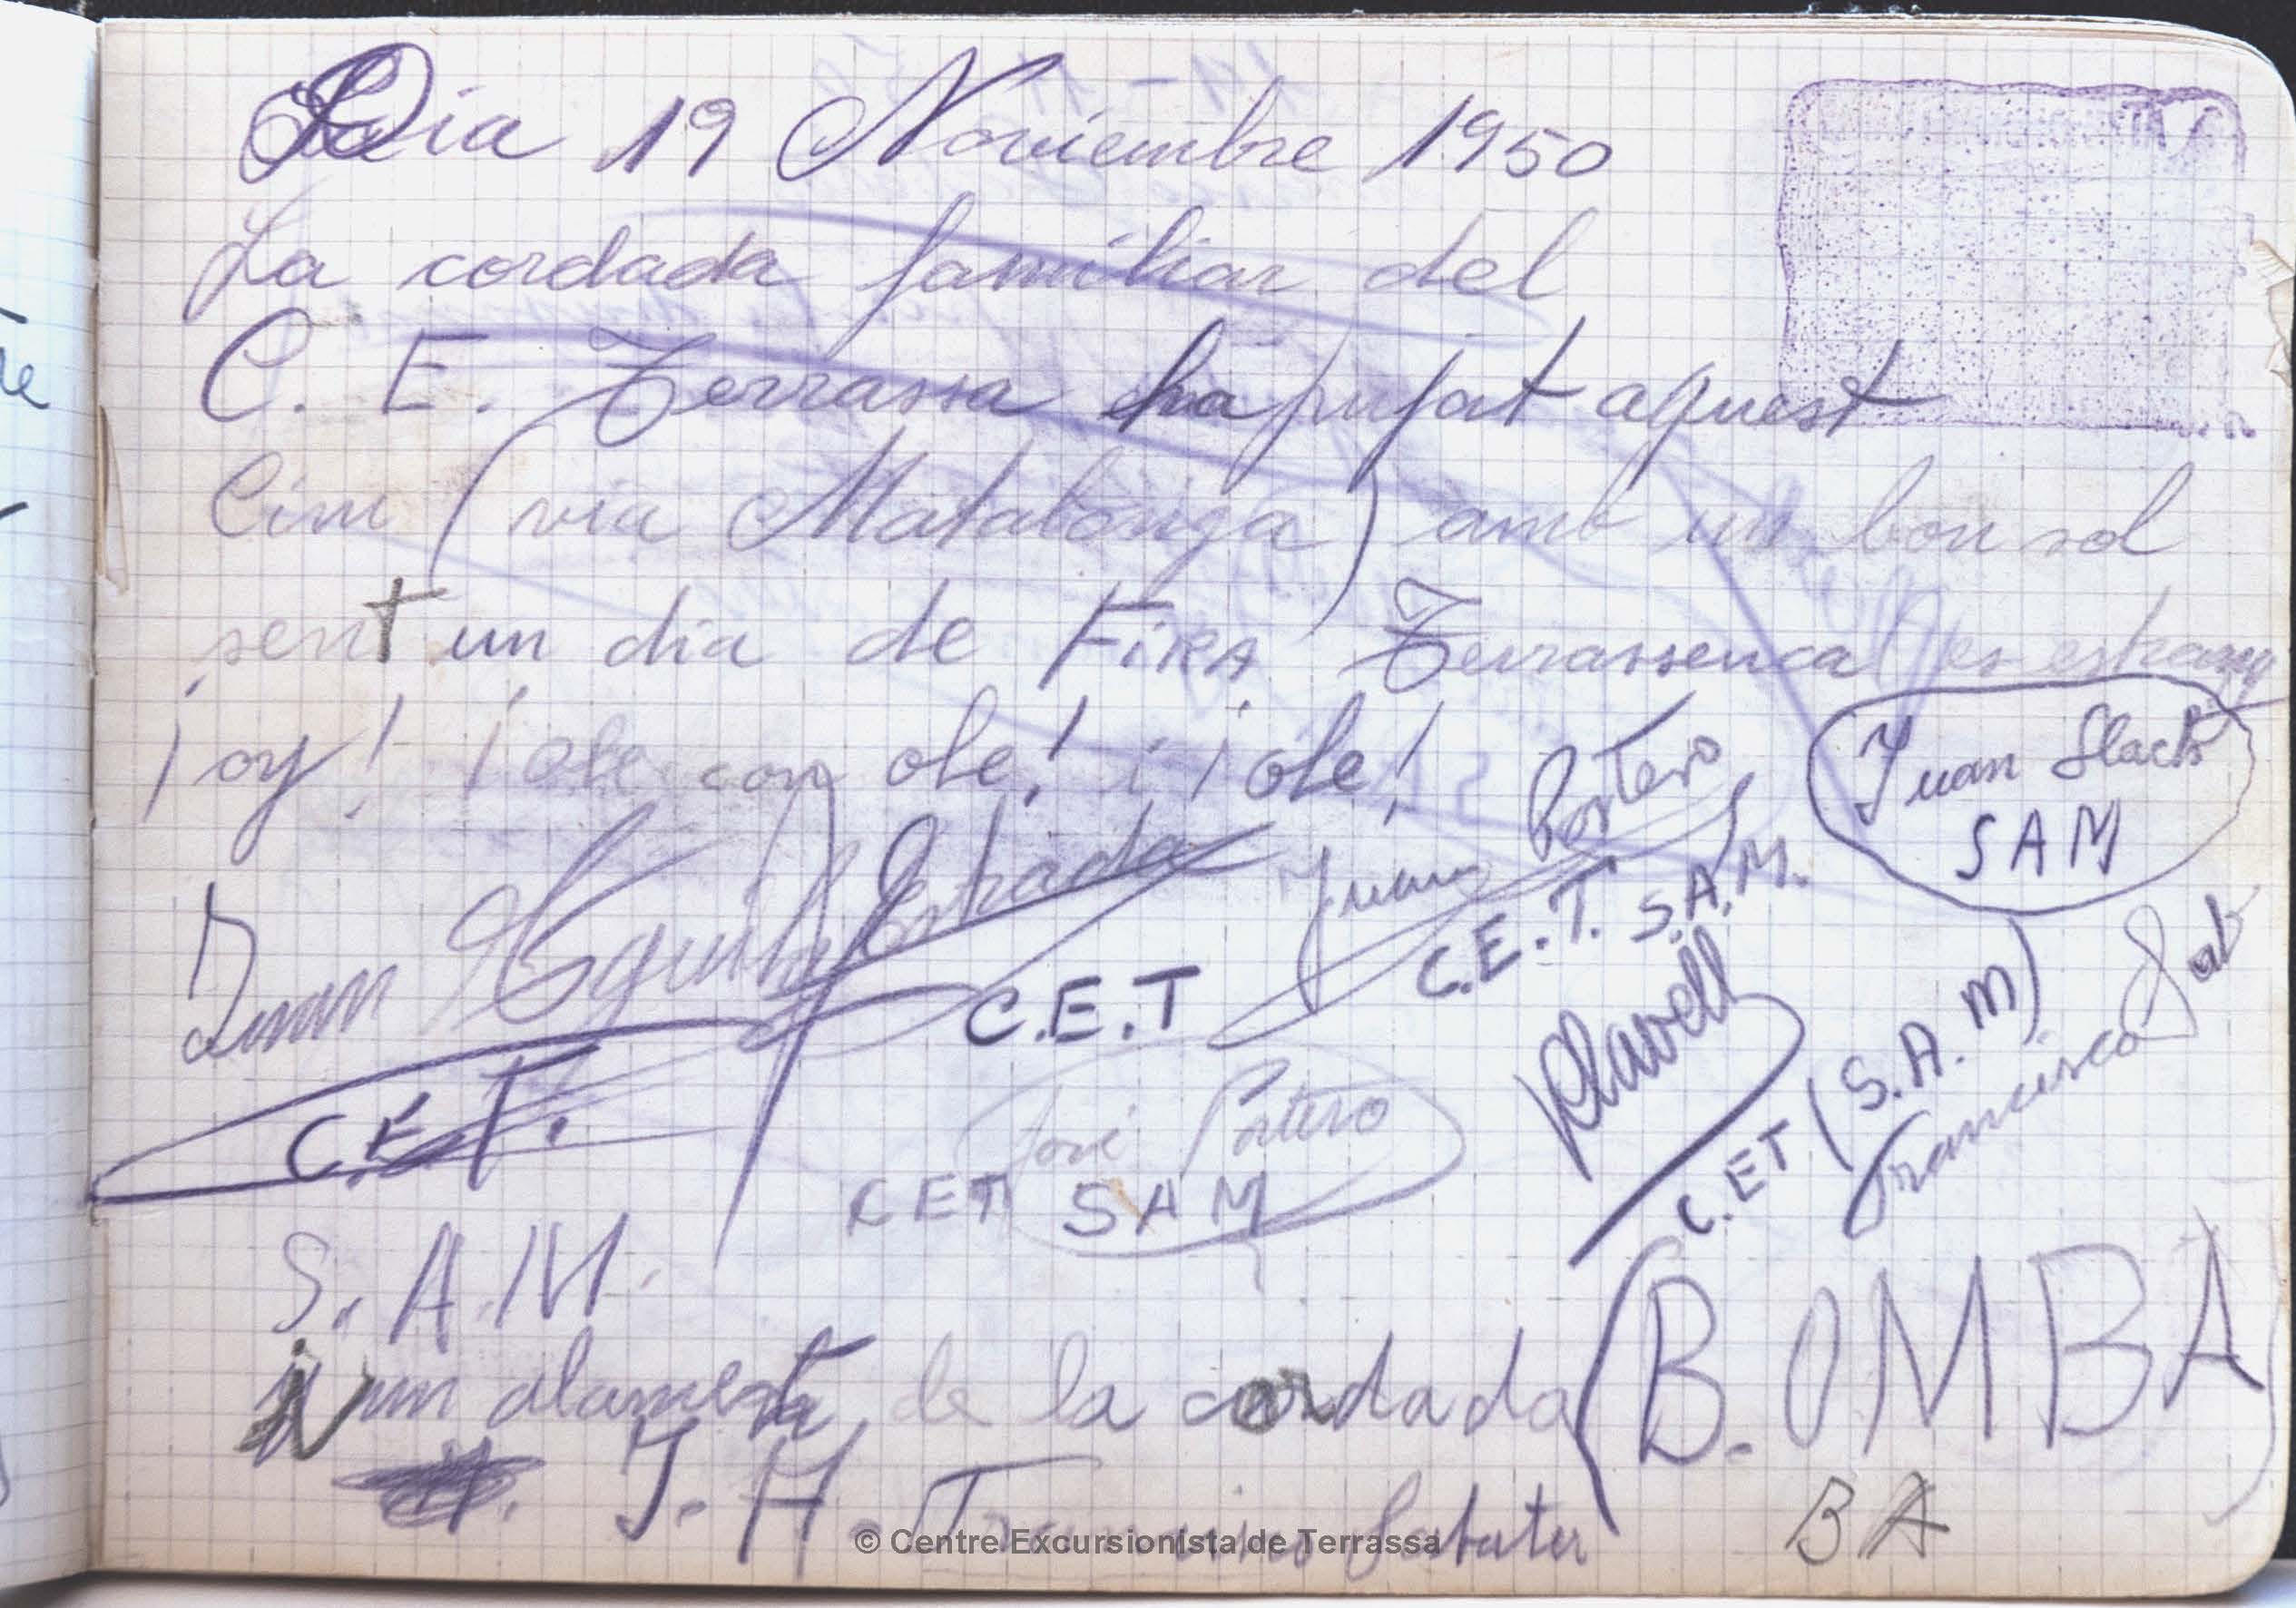 Dia 19 Noviembre 1950
La cordada familiar del
C. E. Terrassa ha pujat aquest
Cim (via Matalonga) amb un bon sol
sent un dia de FiRA Terrassenca es estrany
¡oy! ¡ole con ole! ¡¡ole!
Juan Portero
C.E.T. S.A.M.
Juan
SAM
Juan Aguila Estrada
C.E.T
C.E.T.
Clavell
C.ET (S.A.M)
Francisco Sab
José Portero
CET SAM
S.A.M.
un de la cordada (B.OMBA)
J. H. Francisco Sabater
BA
© Centre Excursionista de Terrassa